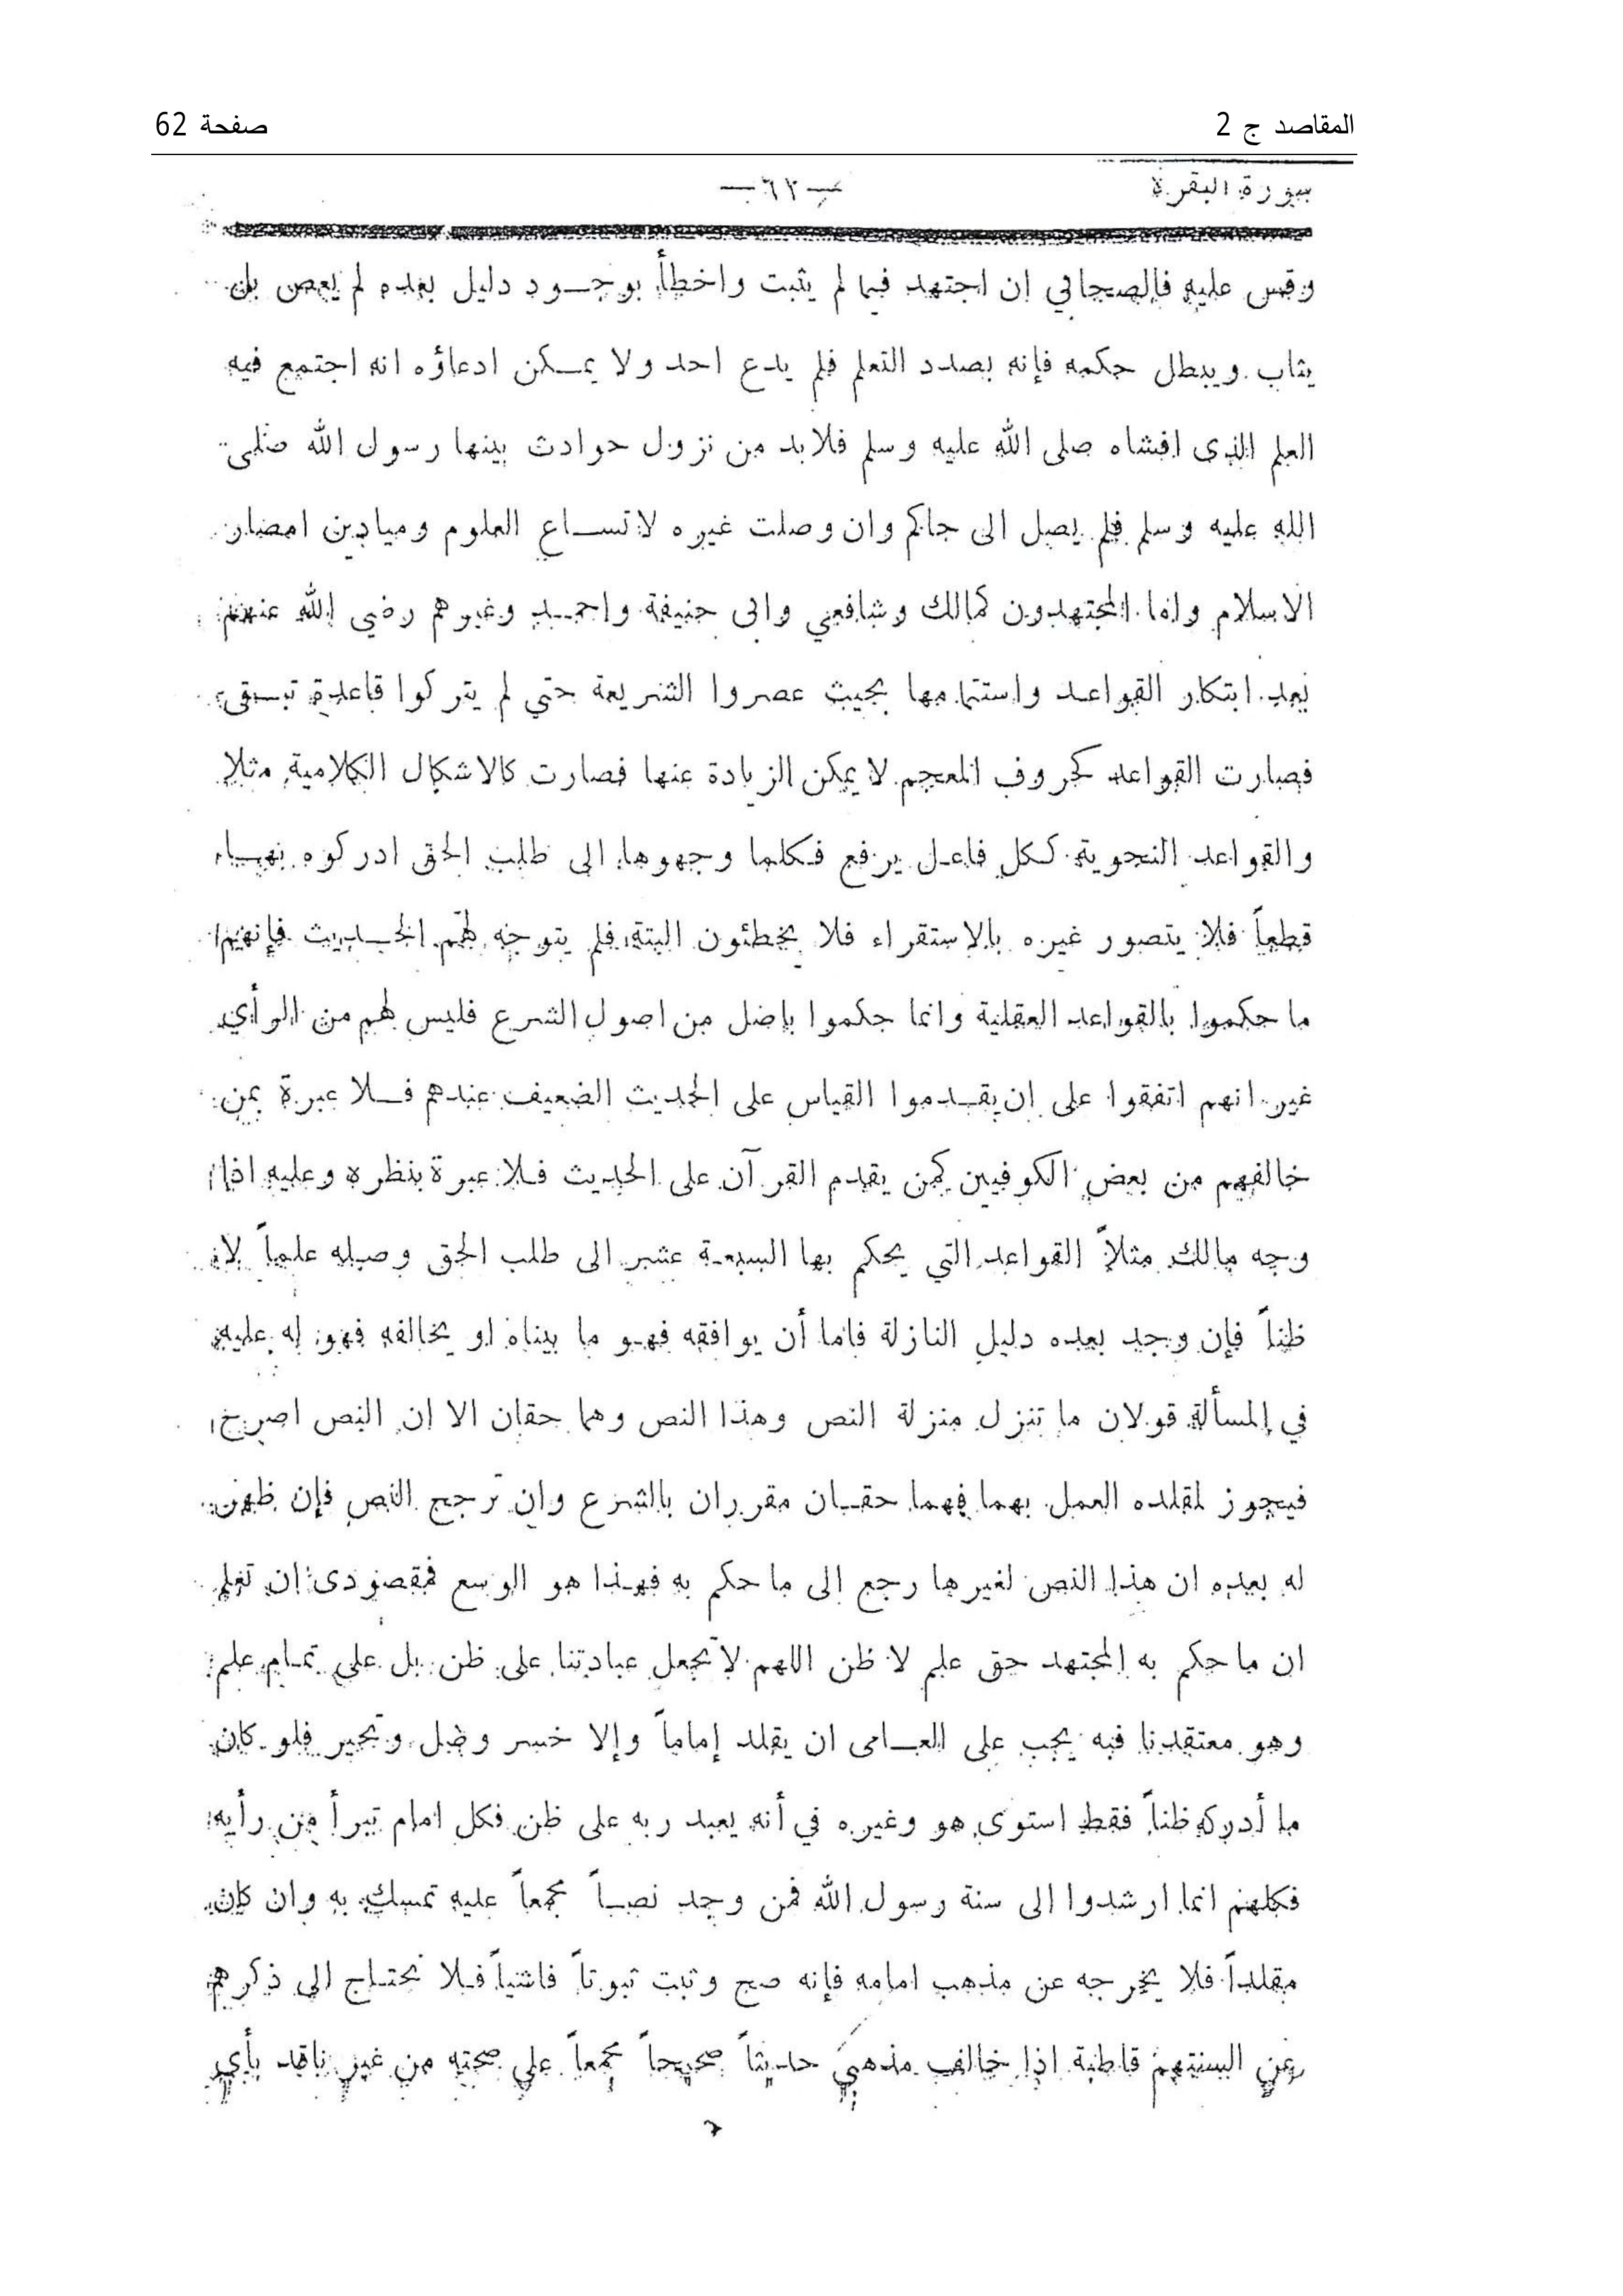 المقاصد ج 2 صفحة 62
سورة البقرة —٦٢—
وقس عليه فالصحابي ان اجتهد فيما لم يثبت واخطأ بوجود دليل بعده لم يعص بل
يثاب ويبطل حكمه فإنه بصدد التعلم فلم يدع احد ولا يمكن ادعاؤه انه اجتمع فيه
العلم الذى افشاه صلى الله عليه وسلم فلابد من نزول حوادث بينها رسول الله صلى
الله عليه وسلم فلم يصل الى حاكم وان وصلت غيره لاتساع العلوم وميادين امصار
الاسلام واما المجتهدون كمالك وشافعي وابى حنيفة واحمد وغيرهم رضي الله عنهم
بعد ابتكار القواعد واستتمامها بحيث عصروا الشريعة حتي لم يتركوا قاعدة تبقى
فصارت القواعد كحروف المعجم لا يمكن الزيادة عنها فصارت كالاشكال الكلامية مثلا
والقواعد النحوية ككل فاعل يرفع فكلما وجهوها الى طلب الحق ادركوه بها
قطعاً فلا يتصور غيره بالاستقراء فلا يخطئون البتة فلم يتوجه لهم الحديث فإنهم
ما حكموا بالقواعد العقلية وانما حكموا باصل من اصول الشرع فليس لهم من الرأي
غير انهم اتفقوا على ان يقدموا القياس على الحديث الضعيف عندهم فلا عبرة بمن
خالفهم من بعض الكوفيين كمن يقدم القرآن على الحديث فلا عبرة بنظره وعليه اذا
وجه مالك مثلاً القواعد التي يحكم بها السبعة عشر الى طلب الحق وصله علماً لا
ظناً فإن وجد بعده دليل النازلة فاما أن يوافقه فهو ما بيناه او يخالفه فهو له عليه
في المسألة قولان ما تنزل منزلة النص وهذا النص وهما حقان الا ان النص اصرح
فيجوز لمقلده العمل بهما فهما حقان مقرران بالشرع وان ترجح النص فإن ظهر
له بعده ان هذا النص لغيرها رجع الى ما حكم به فهذا هو الوسع فمقصودى ان تعلم
ان ما حكم به المجتهد حق علم لا ظن اللهم لا تجعل عبادتنا على ظن بل على تمام علم
وهو معتقدنا فبه يجب على العامى ان يقلد إماماً وإلا خسر وضل وتحير فلو كان
ما أدركه ظناً فقط استوى هو وغيره في أنه يعبد ربه على ظن فكل امام تبرأ من رأيه
فكلهم انما ارشدوا الى سنة رسول الله فمن وجد نصاً مجمعاً عليه تمسك به وان كان
مقلداً فلا يخرجه عن مذهب امامه فإنه صح وثبت ثبوتاً فاشياً فلا نحتاج الى ذكرهم
عن السنتهم قاطبة اذا خالف مذهبي حديثاً صحيحاً مجمعاً على صحته من غير ناقد بأي